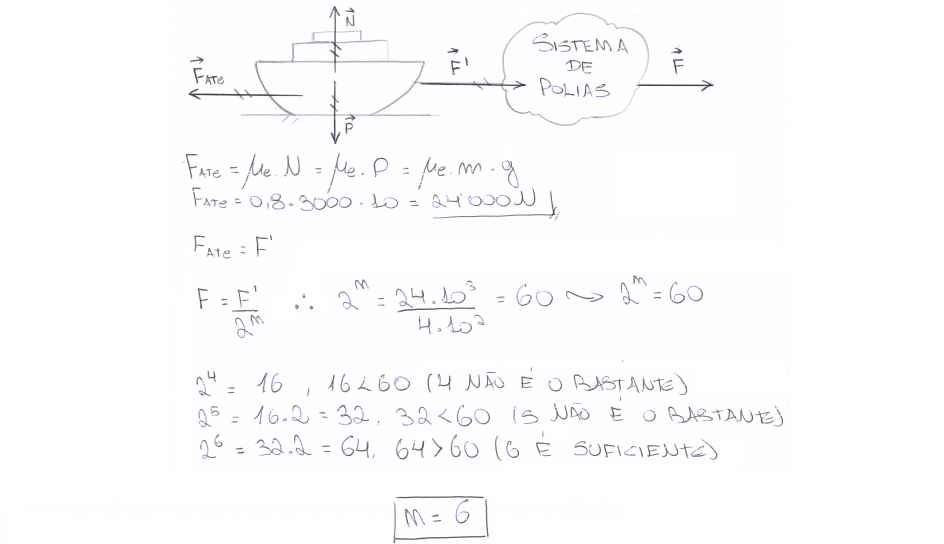 N⃗
F⃗ATe
F⃗'
SISTEMA
DE
POLIAS
F⃗
P⃗
FATe = μe.N = μe.P = μe.m.g
FATe = 0,8.3000.10 = 24'000N
FATe = F'
F = F'/2^m ∴ 2^m = 24.10³/4.10² = 60 ⤳ 2^m = 60
2⁴ = 16 , 16<60 (4 NÃO É O BASTANTE)
2⁵ = 16.2 = 32, 32<60 (5 NÃO É O BASTANTE)
2⁶ = 32.2 = 64, 64>60 (6 É SUFICIENTE)
M = 6